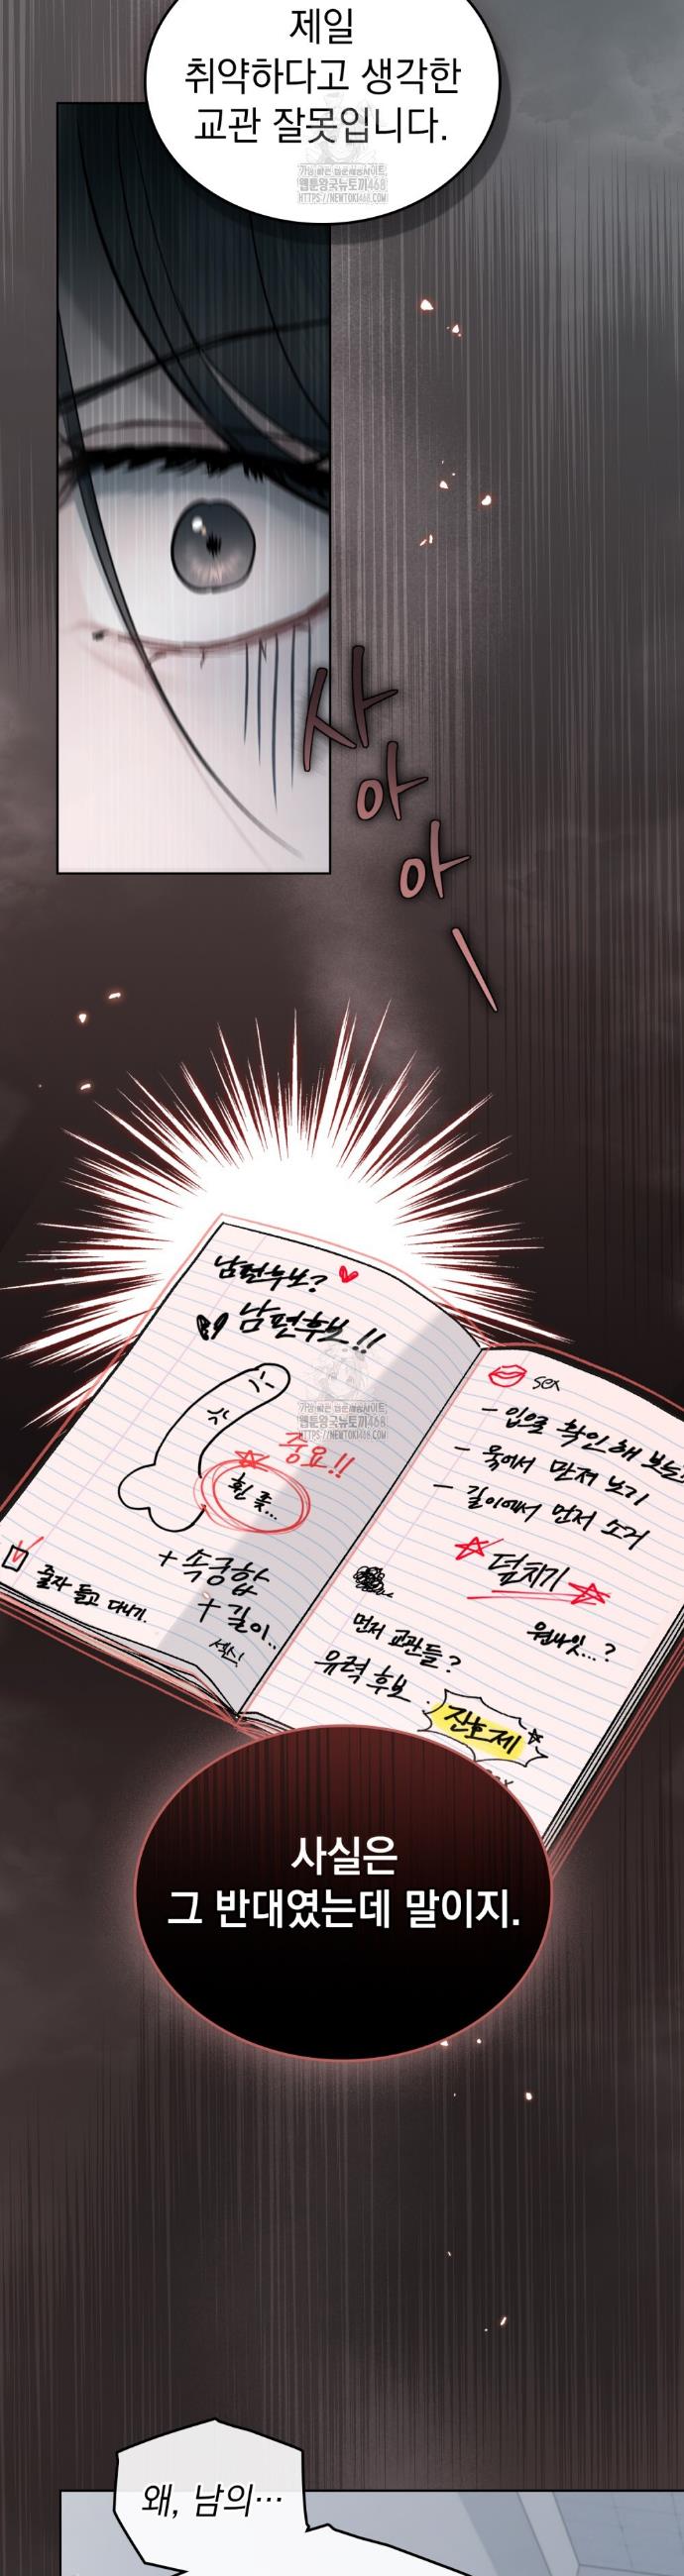 제일
취약하다고 생각한
교관 잘못입니다.
웹툰왕국뉴토끼468
HTTPS://NEWTOKI468.COM
사
아
아
남편후보? ♥
남편후보!!
중요!!
휜 좆...
+ 속궁합
+ 길이..
섹스!
줄자 들고 다니기.
sex
- 입으로 확인해 보는
- 목에서 만져 보기
- 길이에서 먼저 소거
덮치기
원나잇...?
먼저 교관들?
유력 후보.
잔호제
웹툰왕국뉴토끼468
HTTPS://NEWTOKI468.COM
사실은
그 반대였는데 말이지.
왜, 남의…